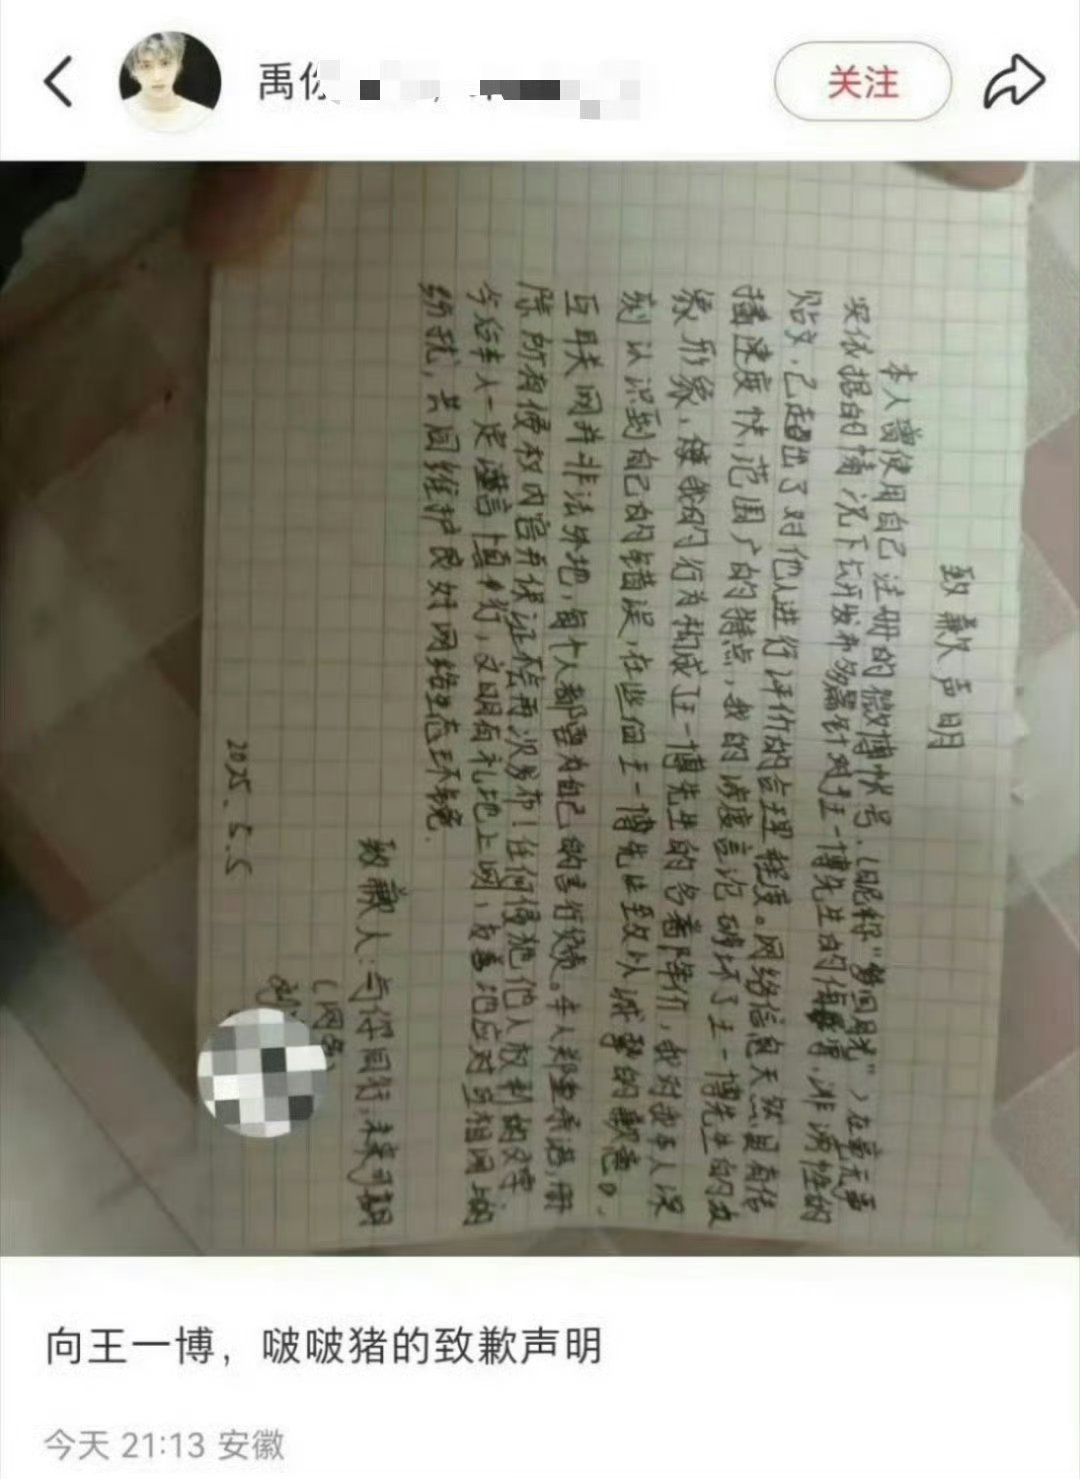 禹你
关注
致歉声明
本人曾使用自己注册的微博帐号、(昵称“梦回
实依据的情况下公开发布多篇针对王一博先生的侮辱、诽谤性的
贴文,已超出了对他人进行评价的合理程度。网络信息天然具有传
播速度快,范围广的特点,我的涉案言论破坏了王一博先生的
象形象,使我的行为构成王一博先生的名誉降低,我对此本人深
刻认识到自己的错误,在此向王一博先生致以诚挚的歉意。
互联网并非法外地,每个人都要为自己的言行负责。本人郑重承诺,删
除所有侵权内容并保证不会再次发布!任何侵犯他人权利的文字
今后本人一定谨言慎行,文明有礼地上网,友善地应对互相网上的
纷扰,共同维护良好网络生态环境.
致歉人:与你同行,未来可期
(网名)
2025.5.5
向王一博,啵啵猪的致歉声明
今天 21:13 安徽